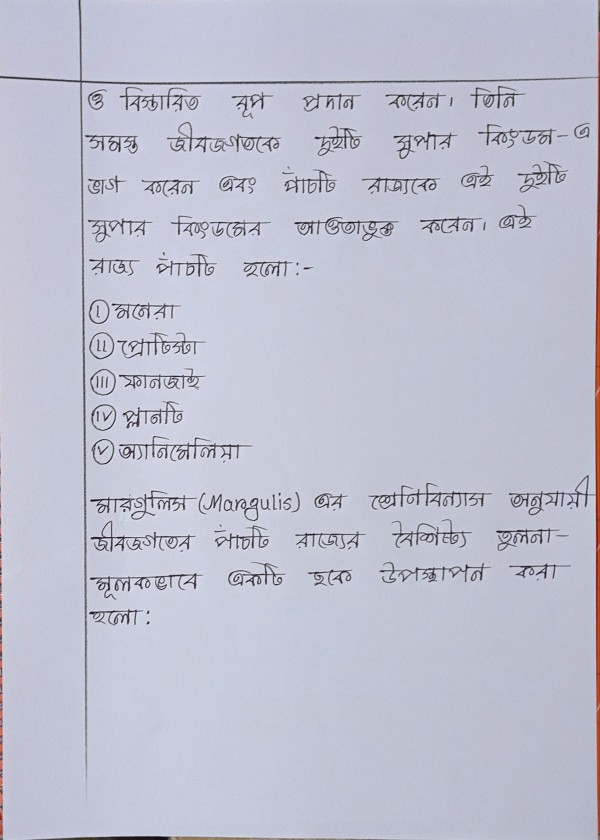 ও বিস্তারিত রূপ প্রদান করেন। তিনি
সমস্ত জীবজগতকে দুইটি সুপার কিংডম-এ
ভাগ করেন এবং পাঁচটি রাজ্যকে এই দুইটি
সুপার কিংডমের আওতাভুক্ত করেন। এই
রাজ্য পাঁচটি হলো:-
(I) মনেরা
(II) প্রোটিস্টা
(III) ফানজাই
(IV) প্লানটি
(V) অ্যানিমেলিয়া
মারগুলিস (Margulis) এর শ্রেণিবিন্যাস অনুযায়ী
জীবজগতের পাঁচটি রাজ্যের বৈশিষ্ট্য তুলনা-
মূলকভাবে একটি ছকে উপস্থাপন করা
হলো: